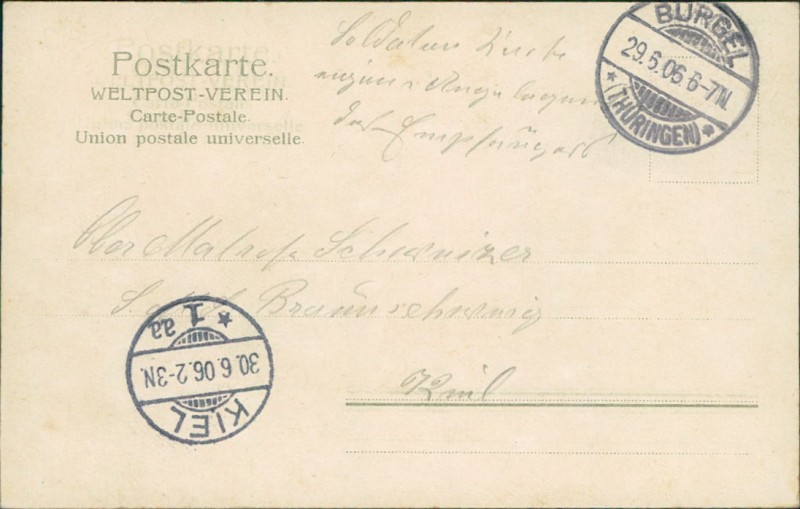 Postkarte.
WELTPOST-VEREIN.
Carte-Postale.
Union postale universelle.
Soldaten Karte
eigene Angelegen
des Empfängers
BÜRGEL
29.6.06.6-7N.
* (THÜRINGEN) *
Ober Matrose Schweizer
S.M.S. Braunschweig
Kiel
* 1 aa
30.6.06.2-3N.
KIEL